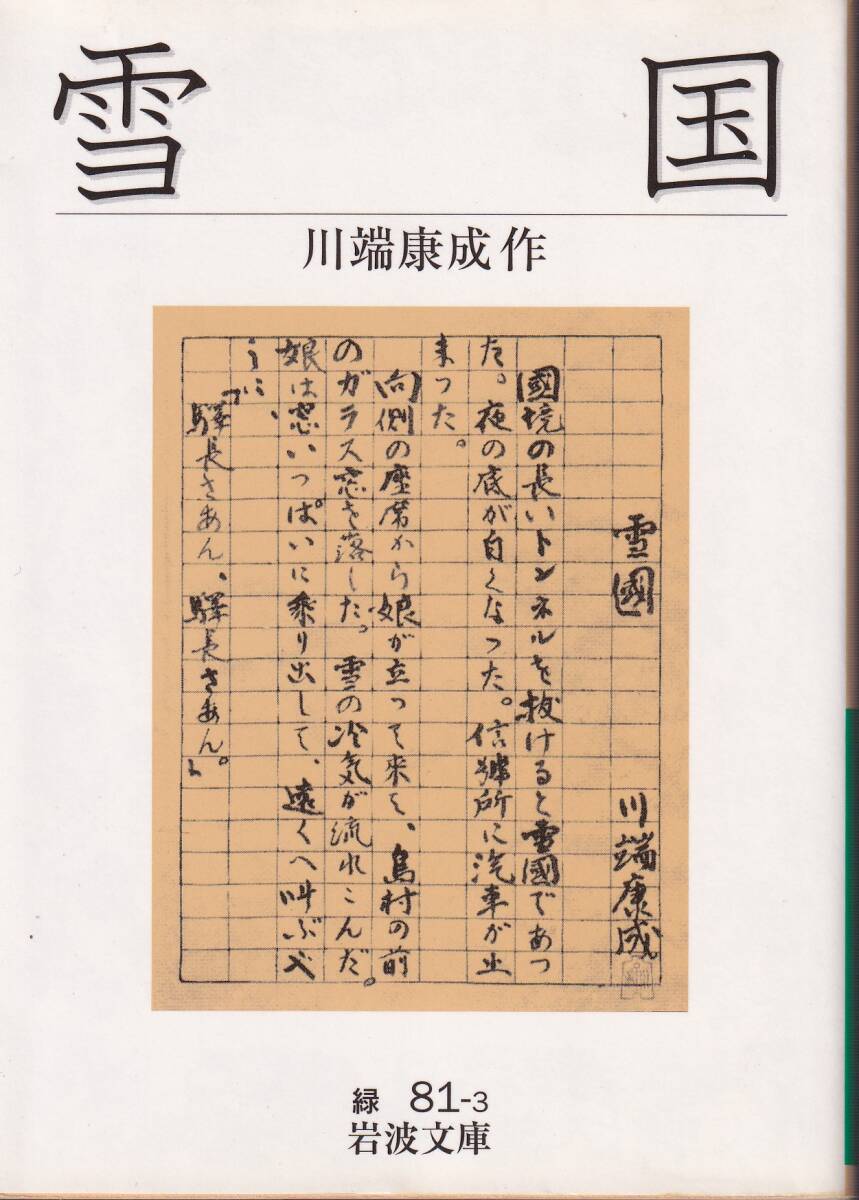 雪国
川端康成作
雪國 川端康成
國境の長いトンネルを抜けると雪國であつ
た。夜の底が白くなつた。信號所に汽車が止
まつた。
向側の座席から娘が立つて来て、島村の前
のガラス窓を落した。雪の冷気が流れこんだ。
娘は窓いつぱいに乗り出して、遠くへ叫ぶや
うに、
「驛長さあん、驛長さあん。」
緑 81-3
岩波文庫